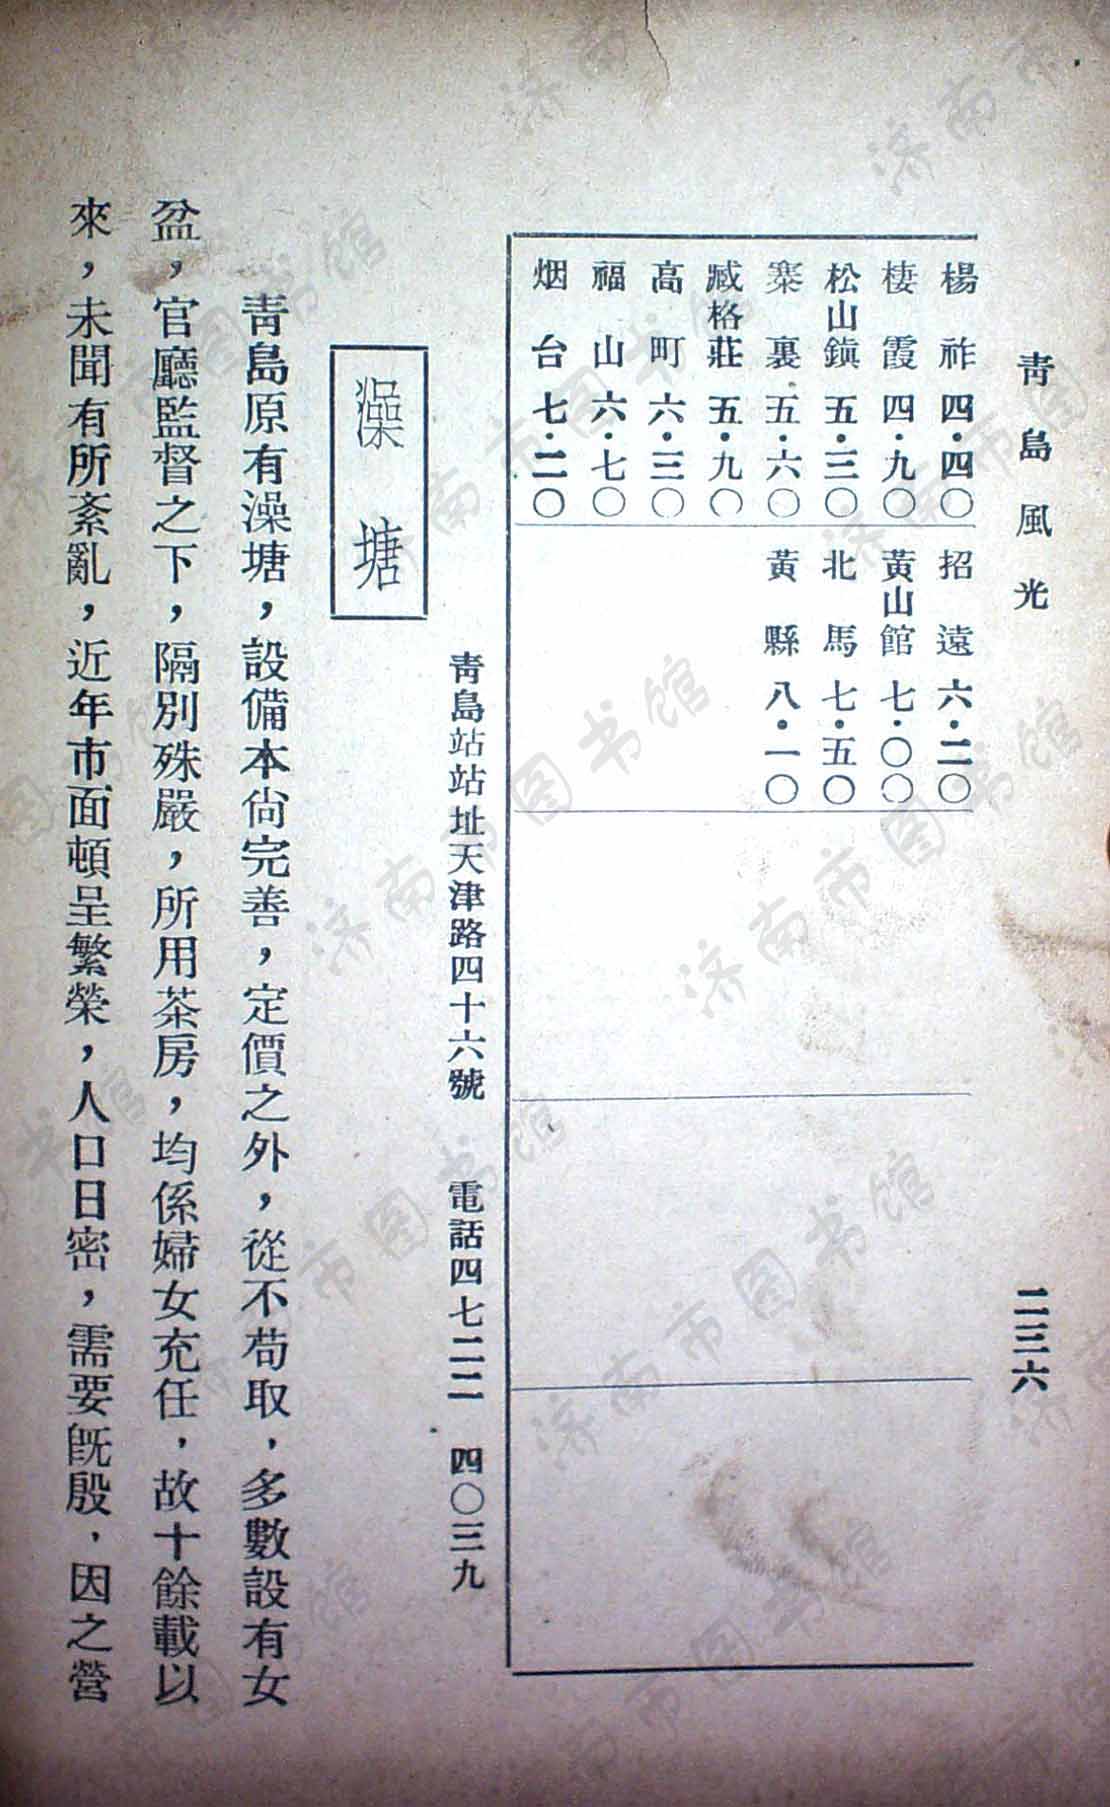 青島風光
二三六
楊祚四·四〇
棲霞四·九〇
松山鎮五·三〇
寨裏五·六〇
臧格莊五·九〇
高町六·三〇
福山六·七〇
烟台七·二〇
招遠六·二〇
黃山館七·〇〇
北馬七·五〇
黃縣八·一〇
青島站站址天津路四十六號 電話四七二二 四〇三九
澡塘
青島原有澡塘，設備本尙完善，定價之外，從不苟取，多數設有女
盆，官廳監督之下，隔別殊嚴，所用茶房，均係婦女充任，故十餘載以
來，未聞有所紊亂，近年市面頓呈繁榮，人口日密，需要旣殷，因之營
济南市图书馆